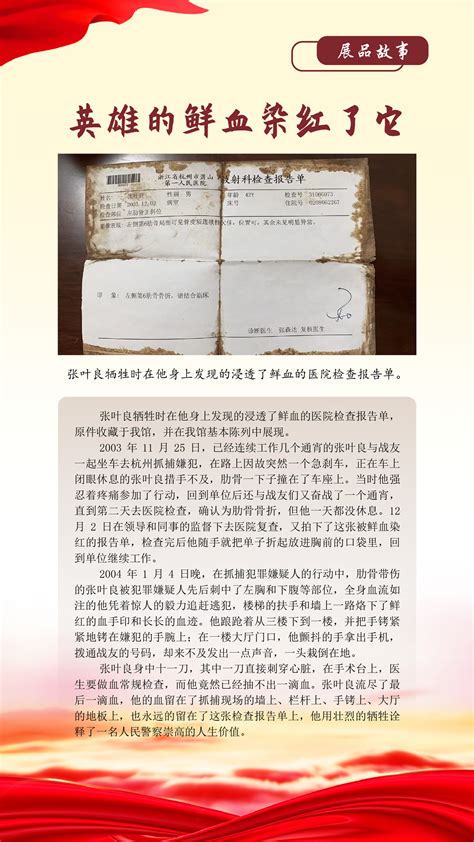 展品故事
英雄的鲜血染红了它
浙江省杭州市萧山
第一人民医院
放射科检查报告单
性别 男
年龄 42Y
检查号 31066073
检查日期 2003.12.02
病室
床号
住院号 0208062267
检查部位 左肋骨正斜位
印 象：左侧第6肋骨骨折，请结合临床
诊断医生 张森达 复核医生
张叶良牺牲时在他身上发现的浸透了鲜血的医院检查报告单。
张叶良牺牲时在他身上发现的浸透了鲜血的医院检查报告单，
原件收藏于我馆，并在我馆基本陈列中展现。
2003 年 11 月 25 日，已经连续工作几个通宵的张叶良与战友
一起坐车去杭州抓捕嫌犯，在路上因故突然一个急刹车，正在车上
闭眼休息的张叶良措手不及，肋骨一下子撞在了车座上。当时他强
忍着疼痛参加了行动，回到单位后还与战友们又奋战了一个通宵，
直到第二天去医院检查，确认为肋骨骨折，但他一天都没休息。12
月 2 日在领导和同事的监督下去医院复查，又拍下了这张被鲜血染
红的报告单，检查完后他随手就把单子折起放进胸前的口袋里，回
到单位继续工作。
2004 年 1 月 4 日晚，在抓捕犯罪嫌疑人的行动中，肋骨带伤
的张叶良被犯罪嫌疑人先后刺中了左胸和下腹等部位，全身血流如
注的他凭着惊人的毅力追赶逃犯，楼梯的扶手和墙上一路烙下了鲜
红的血手印和长长的血迹。他踉跄着从三楼下到一楼，并把手铐紧
紧地铐在嫌犯的手腕上；在一楼大厅门口，他颤抖的手拿出手机，
拨通战友的号码，却来不及发出一点声音，一头栽倒在地。
张叶良身中十一刀，其中一刀直接刺穿心脏，在手术台上，医
生要做血常规检查，而他竟然已经抽不出一滴血。张叶良流尽了最
后一滴血，他的血留在了抓捕现场的墙上、栏杆上、手铐上、大厅
的地板上，也永远的留在了这张检查报告单上，他用壮烈的牺牲诠
释了一名人民警察崇高的人生价值。